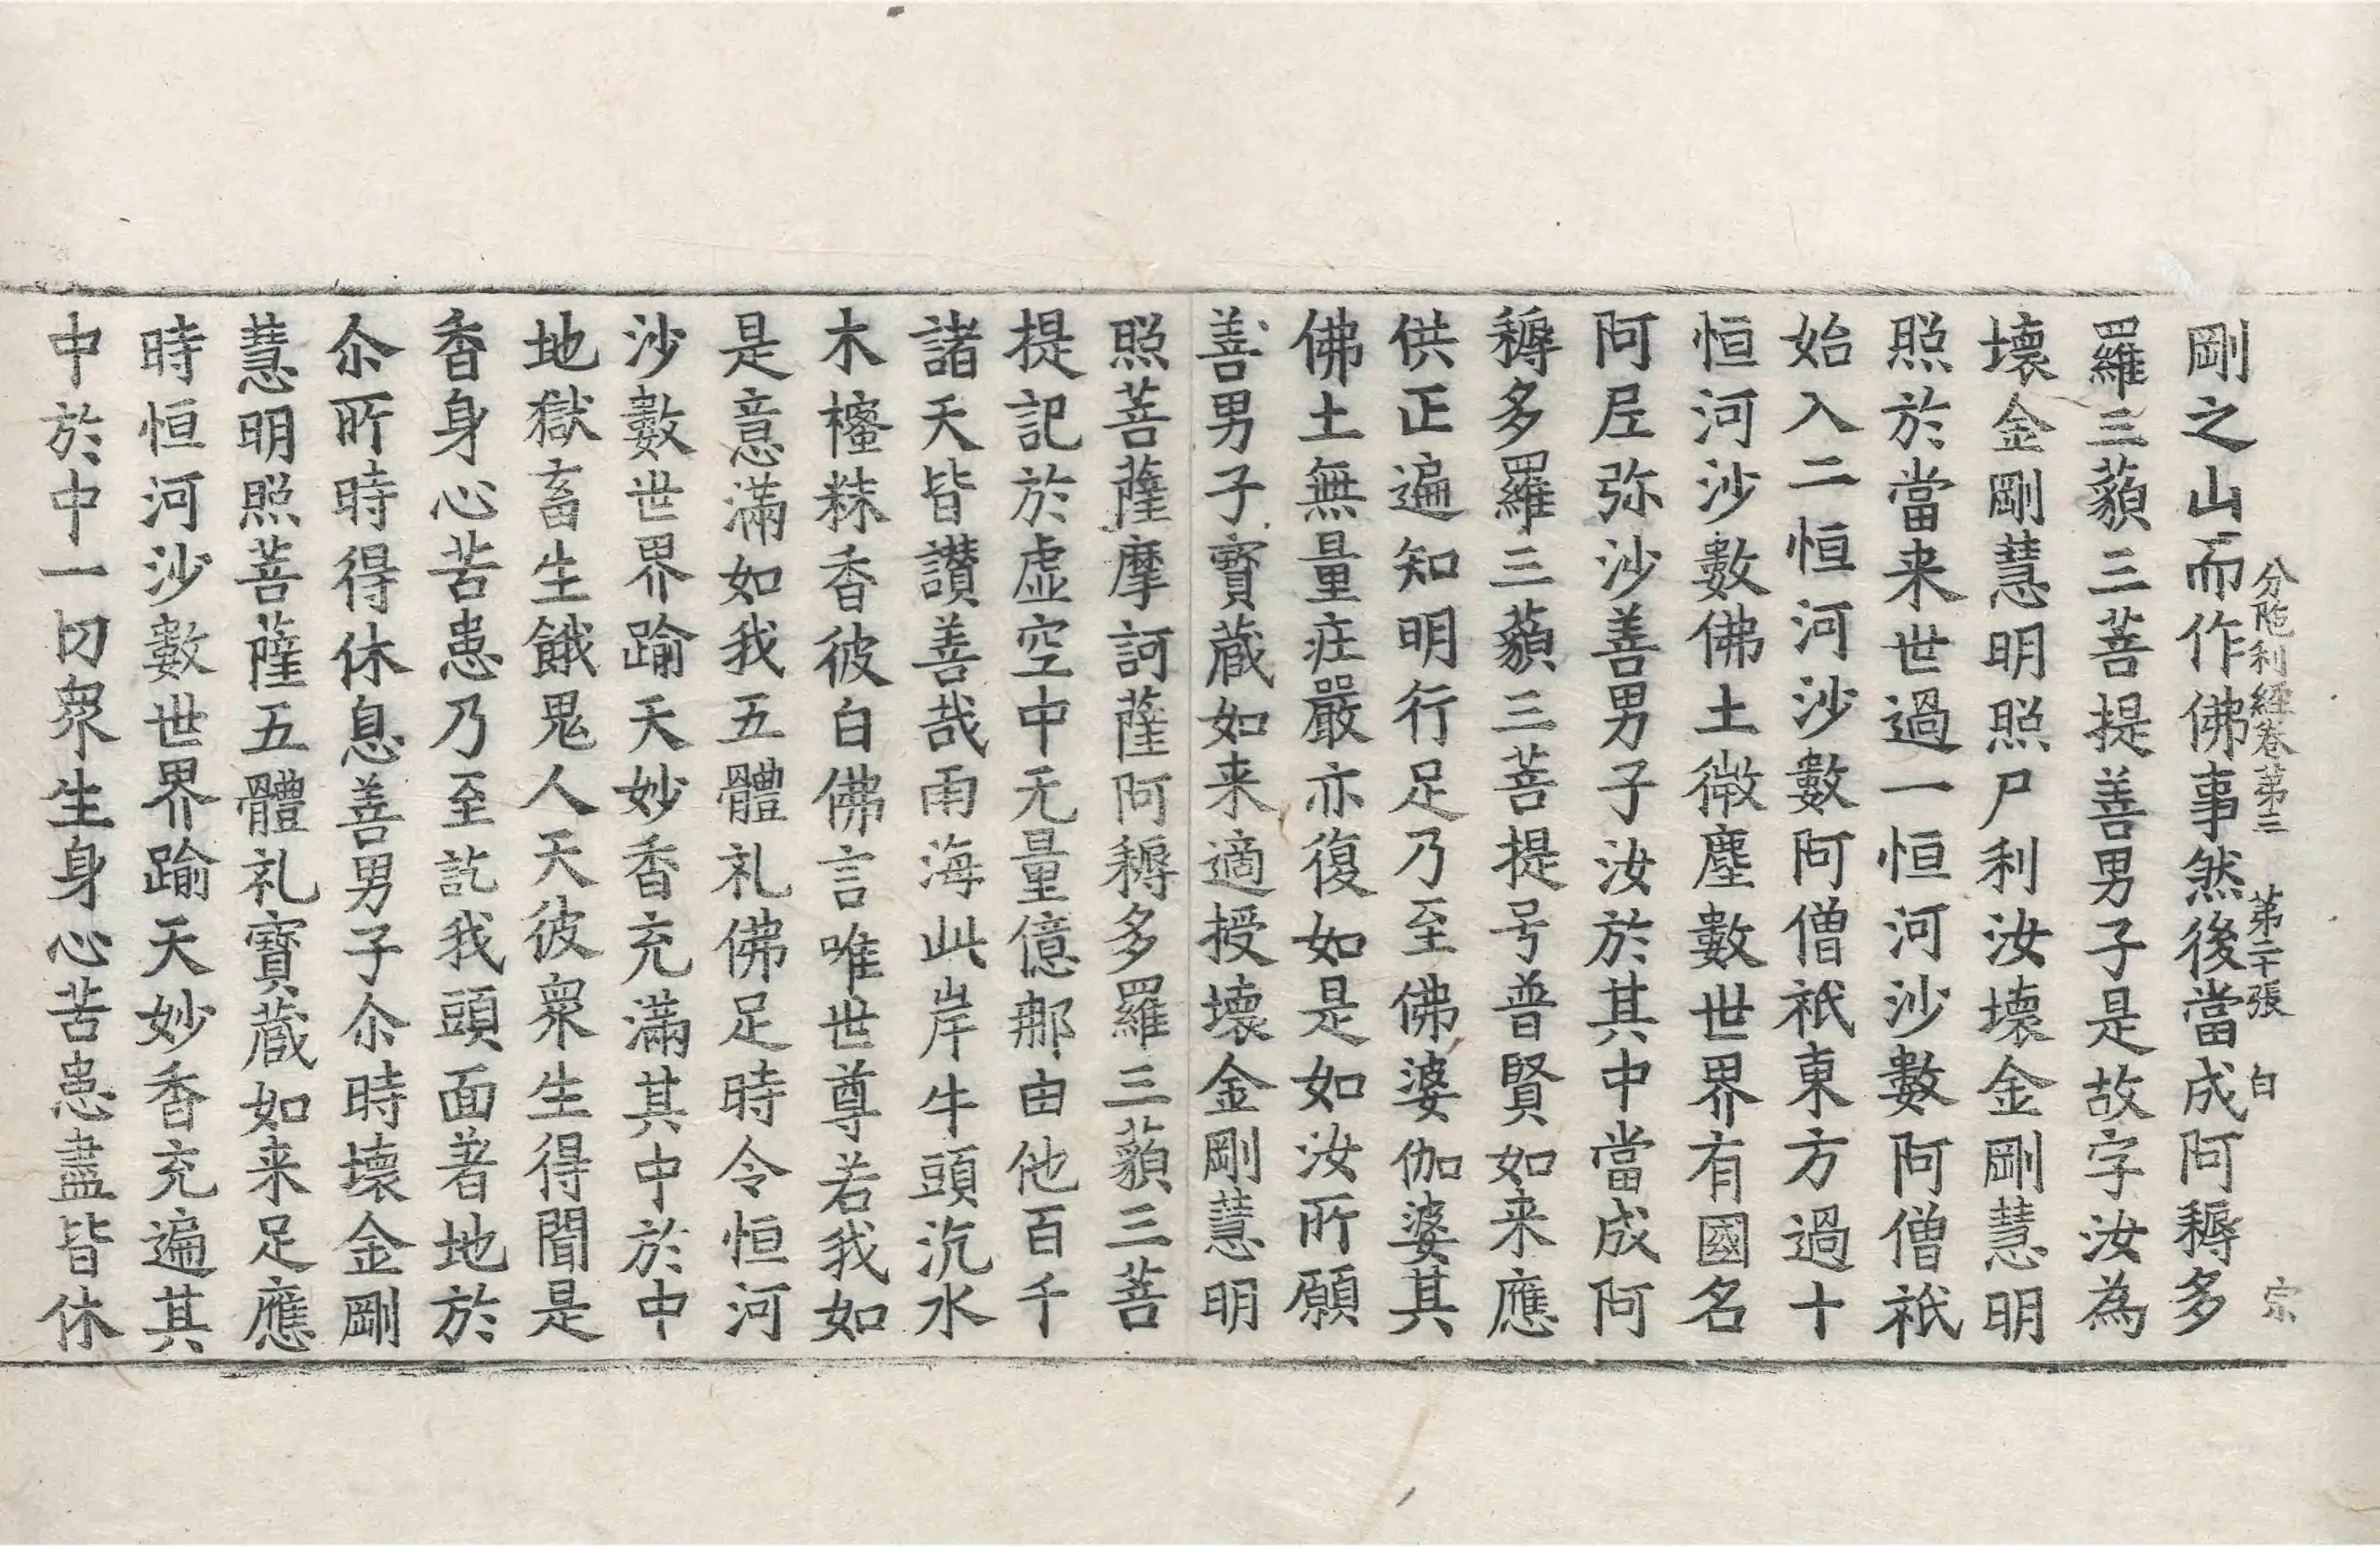 剛之山而作佛事然後當成阿耨多
分陁利經卷第三　第二十張　白　宗
羅三藐三菩提善男子是故字汝為
壞金剛慧明照尸利汝壞金剛慧明
照於當来世過一恒河沙數阿僧祇
始入二恒河沙數阿僧祇東方過十
恒河沙數佛土微塵數世界有國名
阿𡰱弥沙善男子汝於其中當成阿
耨多羅三藐三菩提号普賢如来應
供正遍知明行足乃至佛婆伽婆其
佛土無量莊嚴亦復如是如汝所願
善男子寶蔵如来適授壞金剛慧明
照菩薩摩訶薩阿耨多羅三藐三菩
提記於虛空中无量億那由他百千
諸天皆讃善哉雨海此岸牛頭沉水
木櫁粖香彼白佛言唯世尊若我如
是意滿如我五體礼佛足時令恒河
沙數世界踰天妙香充滿其中於中
地獄畜生餓鬼人天彼衆生得聞是
香身心苦患乃至訖我頭面著地於
尒所時得休息善男子尒時壞金剛
慧明照菩薩五體礼寶蔵如来足應
時恒河沙數世界踰天妙香充遍其
中於中一切衆生身心苦患盡皆休